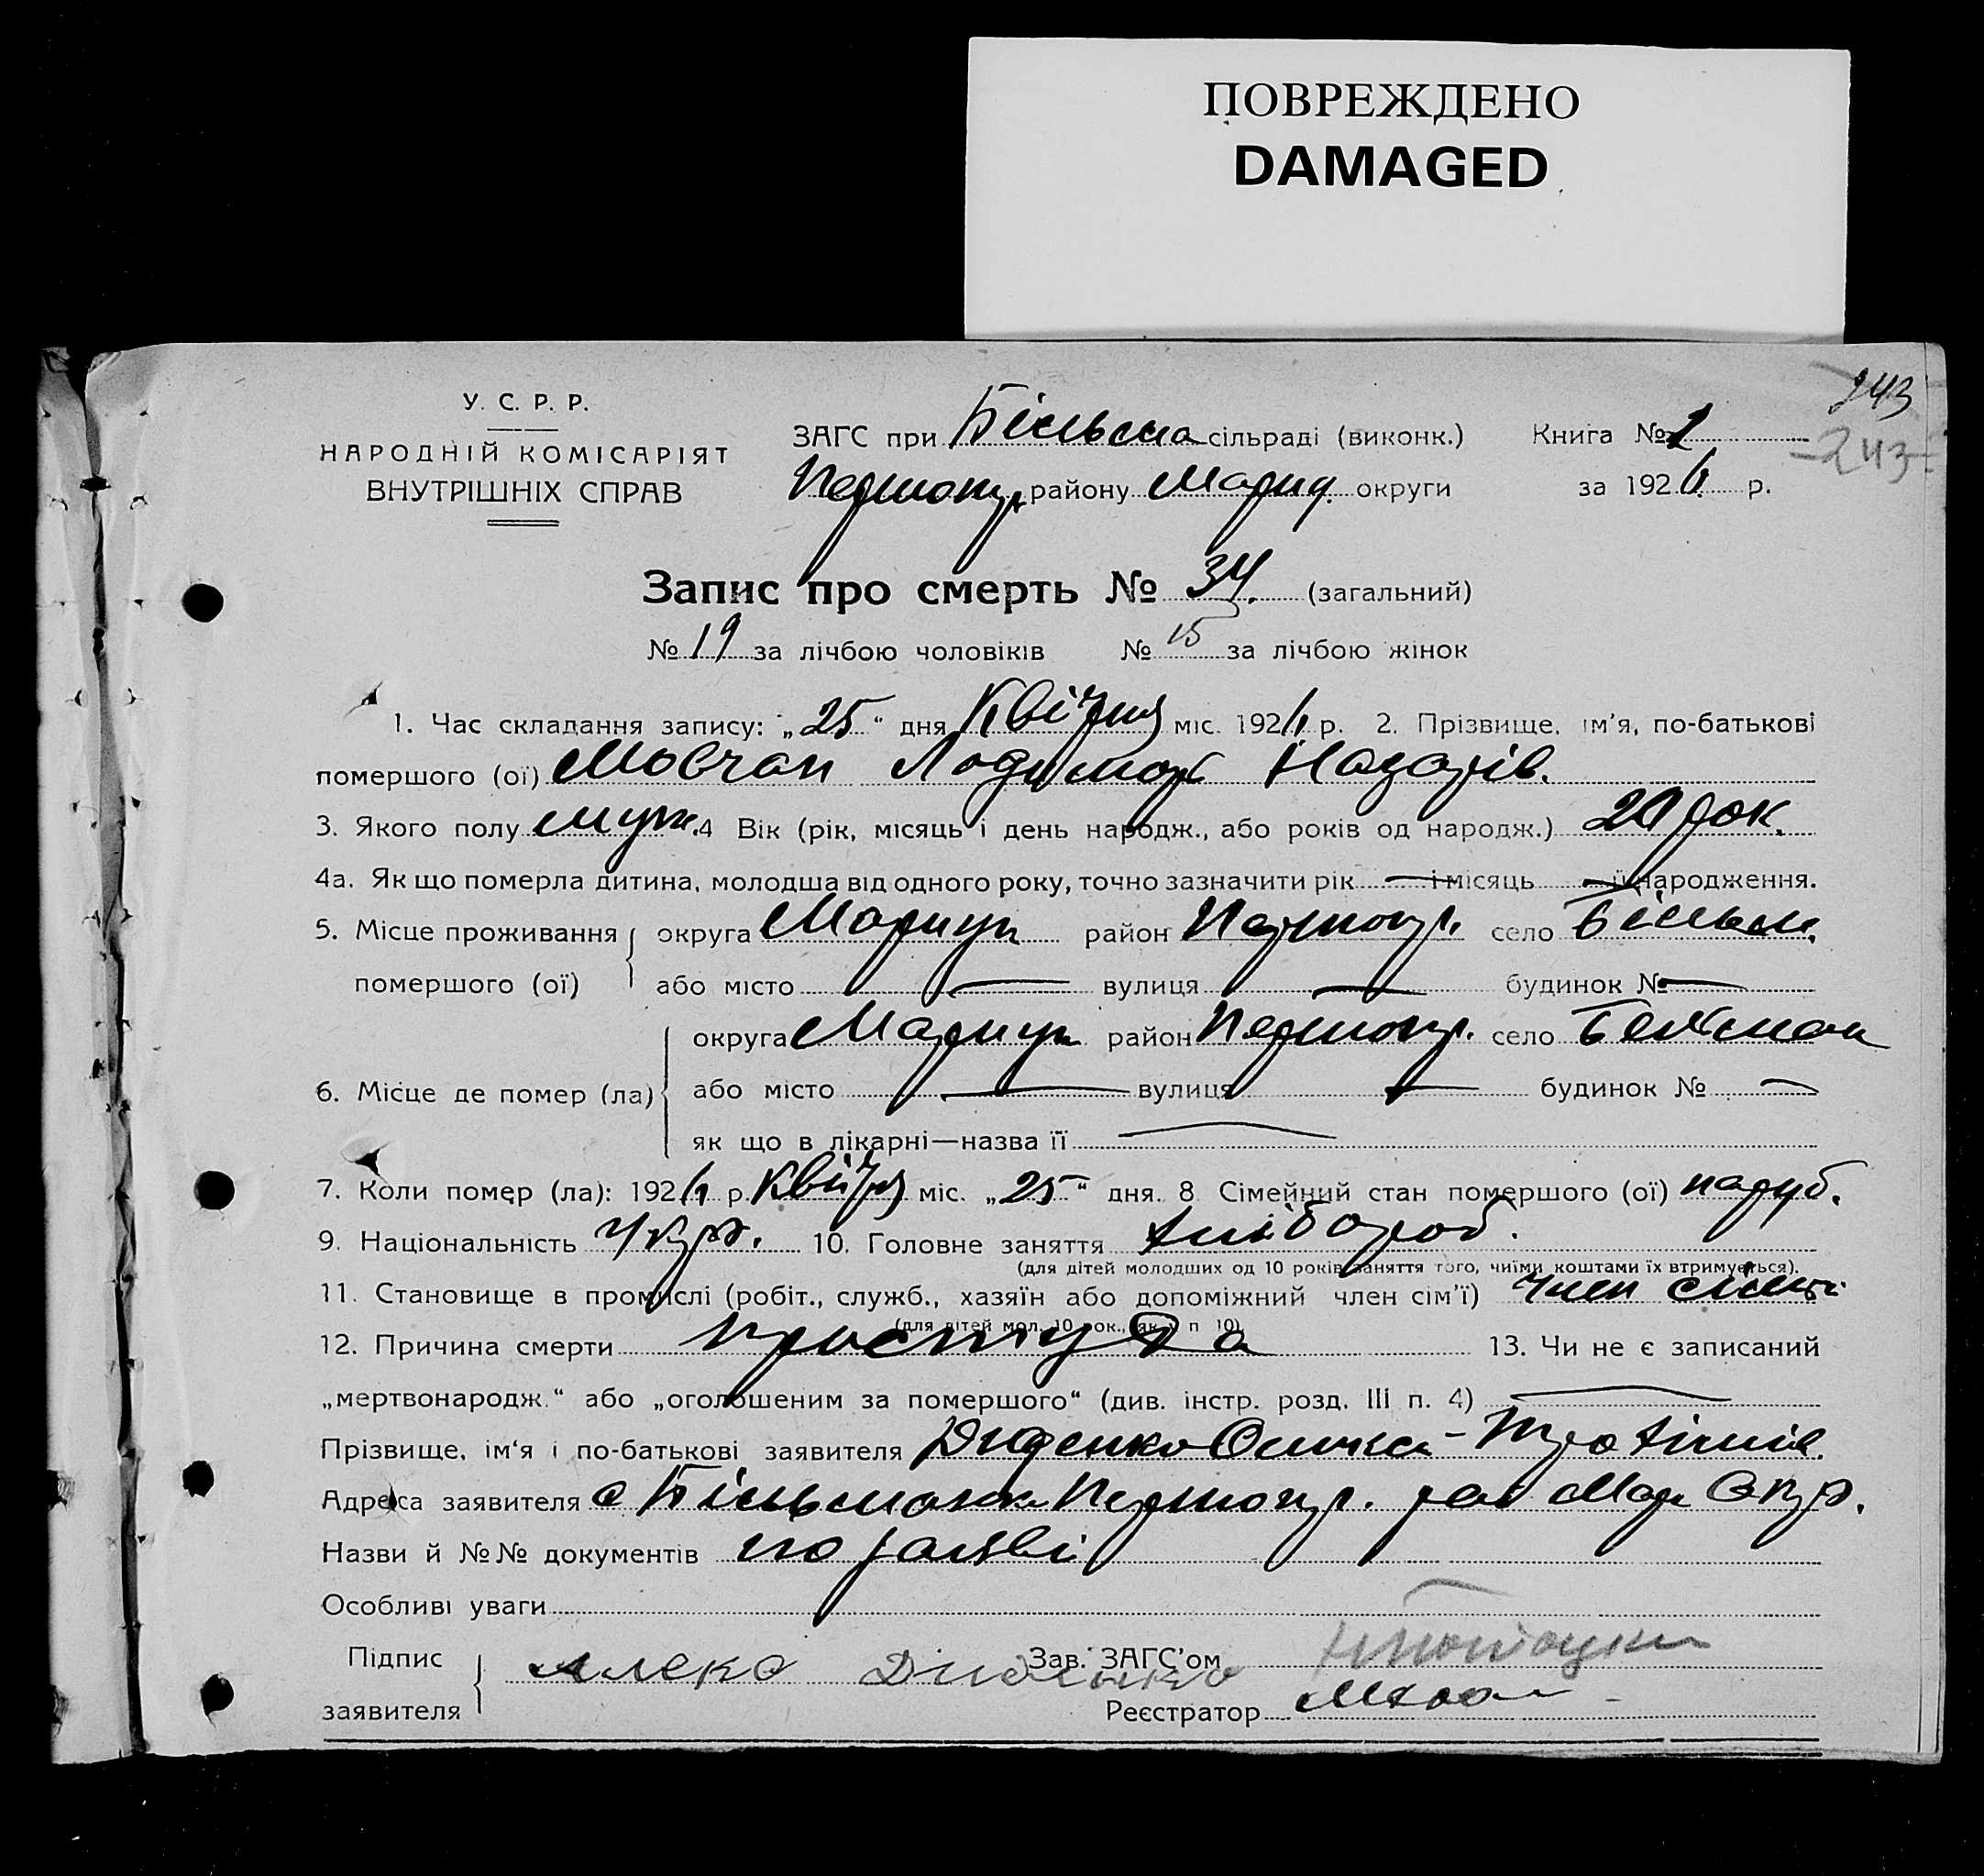 ПОВРЕЖДЕНО
DAMAGED
243
243
У. С. Р. Р.
НАРОДНІЙ КОМІСАРІЯТ
ВНУТРІШНІХ СПРАВ
ЗАГС при Більсма сільраді (виконк.) Книга № 1
району Мариуп. округи за 1926 р.
Запис про смерть № 34. (загальний)
№ 19 за лічбою чоловіків № 15 за лічбою жінок
1. Час складання запису: „25“ дня Квітня міс. 1926 р. 2. Прізвище, ім'я, по-батькові
помершого (ої) Мовчан Назарів.
3. Якого полу муж. 4 Вік (рік, місяць і день народж., або років од народж.) рок.
4а. Як що померла дитина, молодша від одного року, точно зазначити рік — і місяць — її народження.
5. Місце проживання округа Мариуп район село
помершого (ої) або місто — вулиця — будинок № —
6. Місце де помер (ла) округа Мариуп район село
або місто — вулиця — будинок № —
як що в лікарні—назва її —
7. Коли помер (ла): 1926 р. Квітня міс. „25“ дня. 8 Сімейний стан помершого (ої) паруб.
9. Національність Укр. 10. Головне заняття хлібороб.
(для дітей молодших од 10 років заняття того, чиїми коштами їх втримується).
11. Становище в промислі (робіт., служб., хазяїн або допоміжний член сім'ї) член сімті
(для дітей мол. 10 рок., як у п 10)
12. Причина смерти простуда 13. Чи не є записаний
„мертвонародж.“ або „оголошеним за помершого“ (див. інстр. розд. III п. 4) —
Прізвище, ім'я і по-батькові заявителя Диденко
Адреса заявителя с Більсманка Окр.
Назви й №№ документів по заяві
Особливі уваги
Підпис
заявителя Алекс
Зав. ЗАГС'ом
Реєстратор